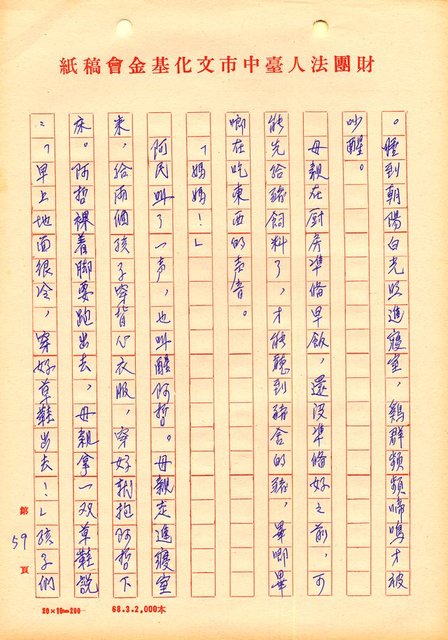 財團法人臺中市文化基金會稿紙
。睡到朝陽白光照進寢室，鷄群頻頻啼鳴才被
吵醒。
母親在厨房準备早飯，還沒準备好之前，可
能先給豬飼料了，才能聽到豬舍的豬，畢唧畢
唧在吃東西的声音。
「媽媽！」
阿民叫了一声，也叫醒阿哲。母親走進寢室
来，給兩個孩子穿背心衣服，穿好就抱阿哲下
床。阿哲裸着脚要跑出去，母親拿一双草鞋説
：「早上地面很冷，穿好草鞋出去！」孩子們
第59頁
20×10=200
68.3.2,000本